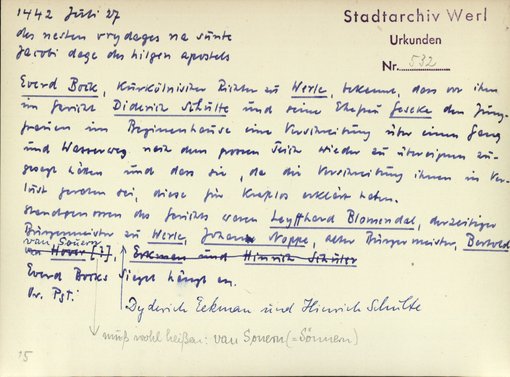 1442 Juli 27
des nesten vrydages na sunte
Jacobi dage des hilgen apostels
Stadtarchiv Werl
Urkunden
Nr. 532
Everd Bock, Kurkölnischer Richter zu Werle, bekennt, dass vor ihm
im Gericht Diderich Schulte und seine Ehefrau Geseke den Jung-
frauen im Beginenhause eine Verschreibung über einen Gang
und Wasserweg nach dem grossen Teich wieder zu übereignen zu-
gesagt haben und dass sie, da die Verschreibung ihnen in Ver-
lust geraten sei, diese für kraftlos erklärt haben.
Standgenossen des Gerichts waren Leyffhard Blomendal, derzeitiger
Bürgermeister zu Werle, Johann Noppe, alter Bürgermeister, Bertold
van Souern
van Hover [?], Erkman und Hinrich Schulter
Everd Bocks Siegel hängt an.
Or. Pgt.
Dyderich Eekman und Hinrich Schulte
muß wohl heißen: van Sonern (= Sönnern)
15